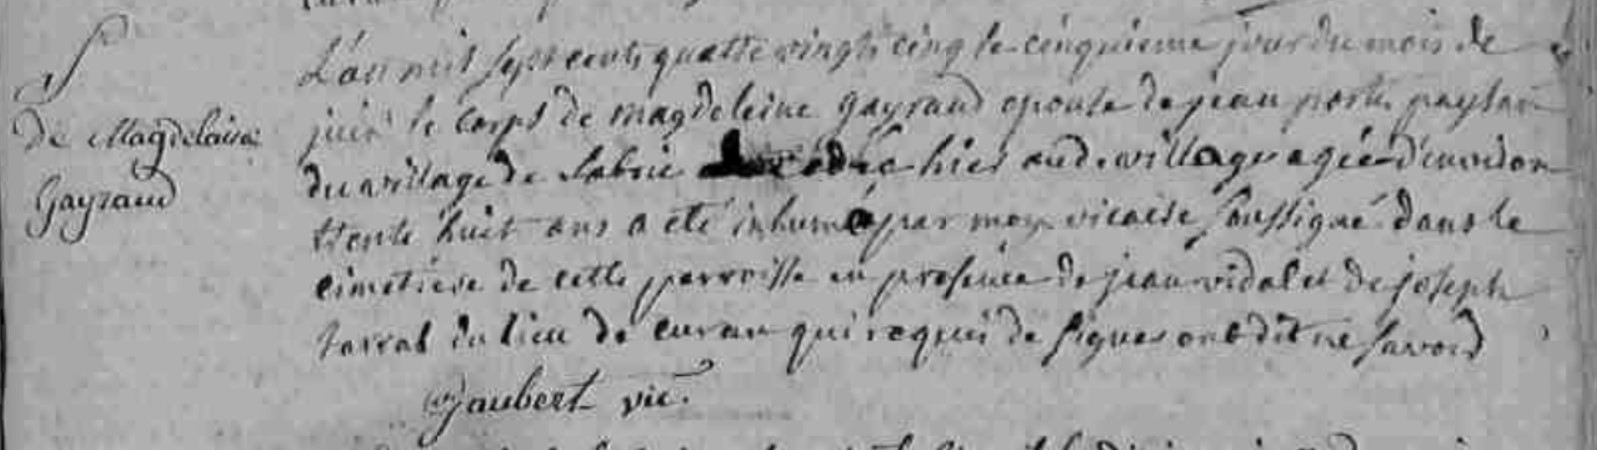 S
de Magdelaine
Gayraud
L'an mil sept cents quatte vingts cinq le cinquieme jour du mois de
juin le corps de magdeleine gayraud epouse de jean porte paysan
du village de decedée hier aud. village agée d'environ
trente huit ans a eté inhumé par moy vicaire soussigné dans le
cimetiere de cette parroisse en presence de jean vidal et de joseph
tarral du lieu de curan qui requis de signer ont dit ne savoir
Jaubert vic.